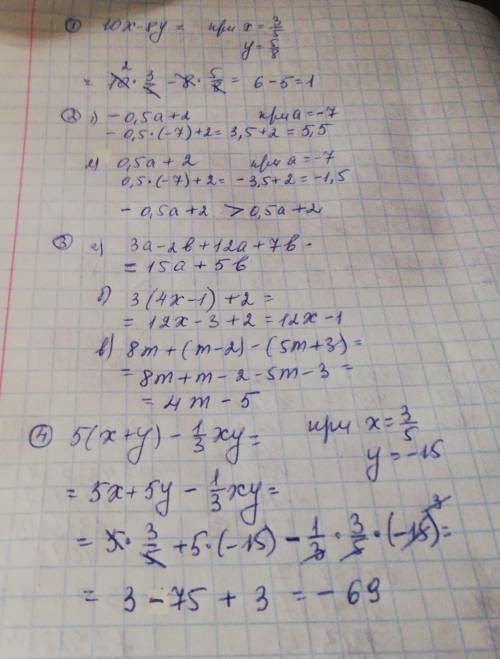 ① 10x - 8y = при x = 3/5
y = 5/8
= 10 · 3/5 - 8 · 5/8 = 6 - 5 = 1
2
② 1) - 0,5a + 2 при a = -7
- 0,5 · (-7) + 2 = 3,5 + 2 = 5,5
2) 0,5a + 2 при a = -7
0,5 · (-7) + 2 = -3,5 + 2 = -1,5
- 0,5a + 2 > 0,5a + 2
③ а) 3a - 2b + 12a + 7b =
= 15a + 5b
б) 3(4x - 1) + 2 =
= 12x - 3 + 2 = 12x - 1
в) 8m + (m - 2) - (5m + 3) =
= 8m + m - 2 - 5m - 3 =
= 4m - 5
④ 5(x + y) - 1/3 xy = при x = 3/5
y = -15
= 5x + 5y - 1/3 xy =
= 5 · 3/5 + 5 · (-15) - 1/3 · 3/5 · (-15) =
3
= 3 - 75 + 3 = - 69